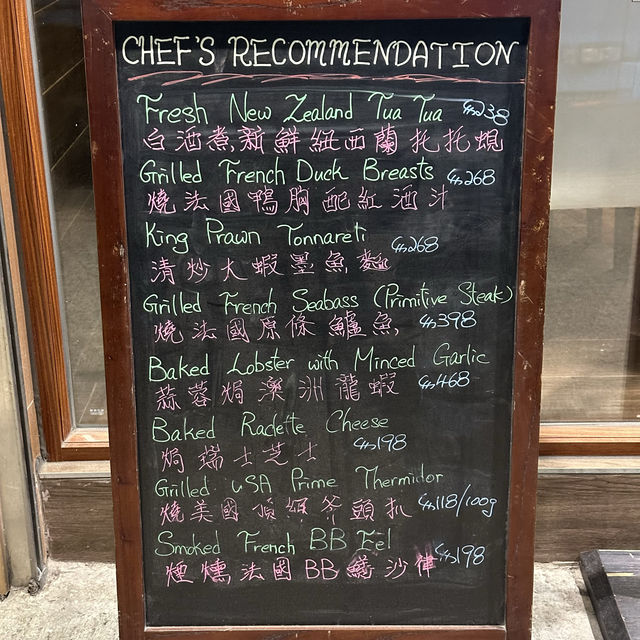 CHEF'S RECOMMENDATION
Fresh New Zealand Tua Tua $238
白酒煮新鮮紐西蘭托托蜆
Grilled French Duck Breasts $268
燒法國鴨胸配紅酒汁
King Prawn Tonnareti $268
清炒大蝦墨魚麵
Grilled French Seabass (Primitive Steak)
燒法國原條鱸魚 $398
Baked Lobster with Minced Garlic
蒜蓉焗澳洲龍蝦 $468
Baked Raclette Cheese
焗瑞士芝士 $198
Grilled USA Prime Thermidor
燒美國頂級斧頭扒 $118/100g
Smoked French BB Eel $198
煙燻法國BB鱔沙律